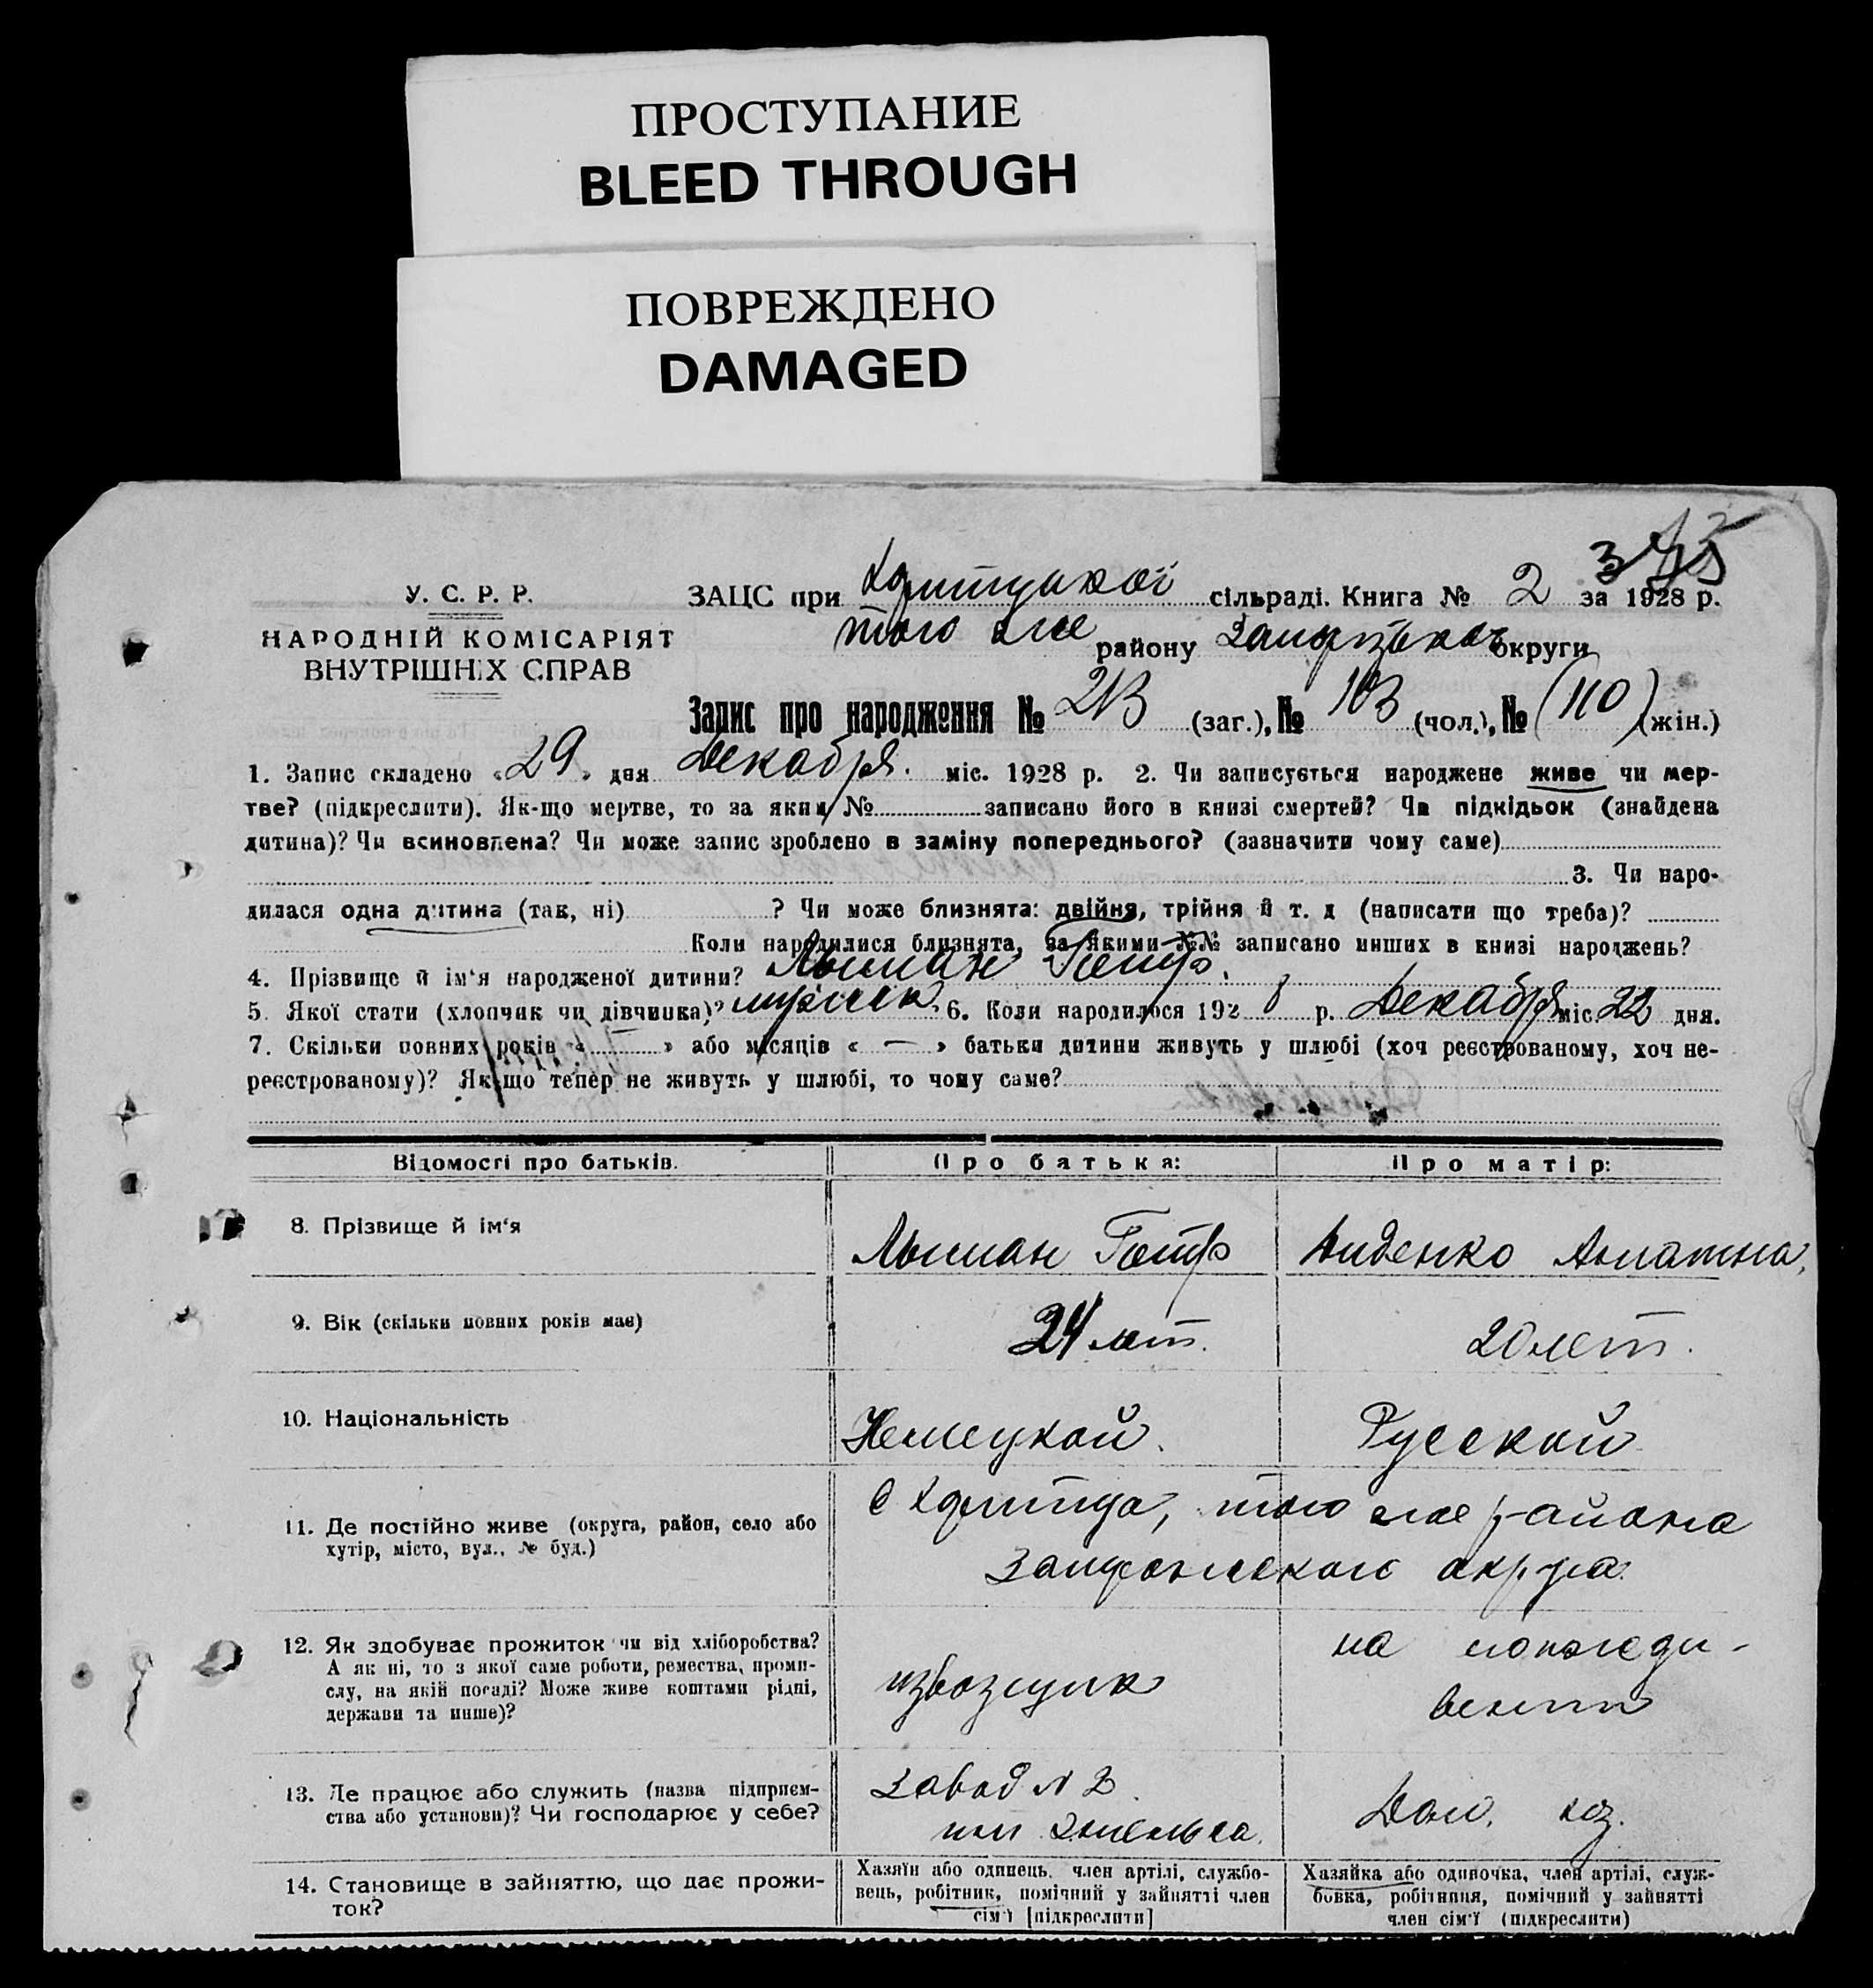 ПРОСТУПАНИЕ
BLEED THROUGH
ПОВРЕЖДЕНО
DAMAGED
У. С. Р. Р.
НАРОДНІЙ КОМІСАРІЯТ
ВНУТРІШНІХ СПРАВ
ЗАЦС при Хортицькой сільраді. Книга № 2 за 1928 р.
того же району округи
Запис про народження № 213 (заг.), № 103 (чол.), № (110) (жін.)
1. Запис складено «29» дня Декабря. міс. 1928 р. 2. Чи записується народжене живе чи мер-
тве? (підкреслити). Як-що мертве, то за яким № записано його в книзі смертей? Чи підкідьок (знайдена
дитина)? Чи всиновлена? Чи може запис зроблено в заміну попереднього? (зазначити чому саме)
3. Чи наро-
дилася одна дитина (так, ні) ? Чи може близнята: двійня, трійня й т. д (написати що треба)?
Коли народилися близнята, за якими №№ записано инших в книзі народжень?
4. Прізвище й ім'я народженої дитини? Петр.
5. Якої стати (хлопчик чи дівчинка)? мужск. 6. Коли народилося 1928 р. Декабря міс. 22 дня.
7. Скільки повних років « » або місяців « — » батьки дитини живуть у шлюбі (хоч реєстрованому, хоч не-
реєстрованому)? Як-що тепер не живуть у шлюбі, то чому саме?
Відомості про батьків. Про батька: Про матір:
8. Прізвище й ім'я Петр Диденко
9. Вік (скільки повних років має) 24 лет. 20 лет.
10. Національність Немецкой. Русской
11. Де постійно живе (округа, район, село або
хутір, місто, вул., № буд.)
с Хортица, того же района
Запорожского округа.
12. Як здобуває прожиток чи від хліборобства?
А як ні, то з якої саме роботи, ремества, проми-
слу, на якій посаді? Може живе коштами рідні,
держави та инше)?
извозчик
на
13. Де працює або служить (назва підприєм-
ства або установи)? Чи господарює у себе?
Завод № 3
им Энгельса.
Дом. хоз.
14. Становище в зайняттю, що дає прожи-
ток?
Хазяїн або одинець, член артілі, службо-
вець, робітник, помічний у зайнятті член
сім'ї [підкреслити]
Хазяйка або одиночка, член артілі, служ-
бовка, робітниця, помічний у зайнятті
член сім'ї (підкреслити)